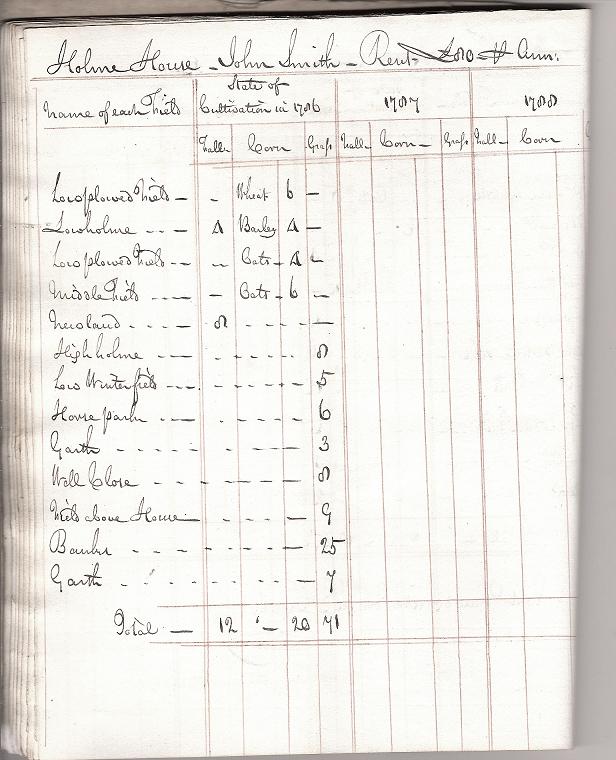 Holme House - John Smith - Rent £80 ⅌ Ann:
Name of each Field State of Cultivation in 1786 1787 1788
Fall- Corn Graſs Fall- Corn - Graſs Fall- Corn
Low plowed Field - - Wheat 6 -
Lowholme - - - 4 Barley 4 -
Low plowed Field - - - Oats - 4 -
Middle Field - - - - Oats - 6 -
Newland - - - - 8 - - - - -
High holme - - - - - - 8
Low Winter field - - - - - - 5
Horse park - - - - - - 6
Garth - - - - - - 3
Well Close - - - - - - 8
Field above House - - - - - 9
Banks - - - - - - 25
Garth - - - - - - 7
Total - 12 - 20 71